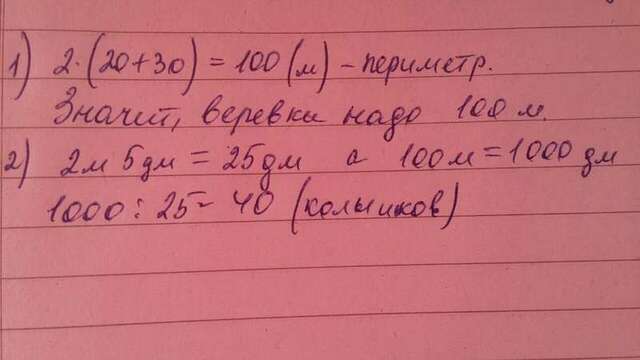 1) 2·(20+30) = 100 (м) – периметр.
Значит, веревки надо 100 м.
2) 2м 5дм = 25дм а 100м = 1000 дм
1000 : 25 = 40 (колышков)